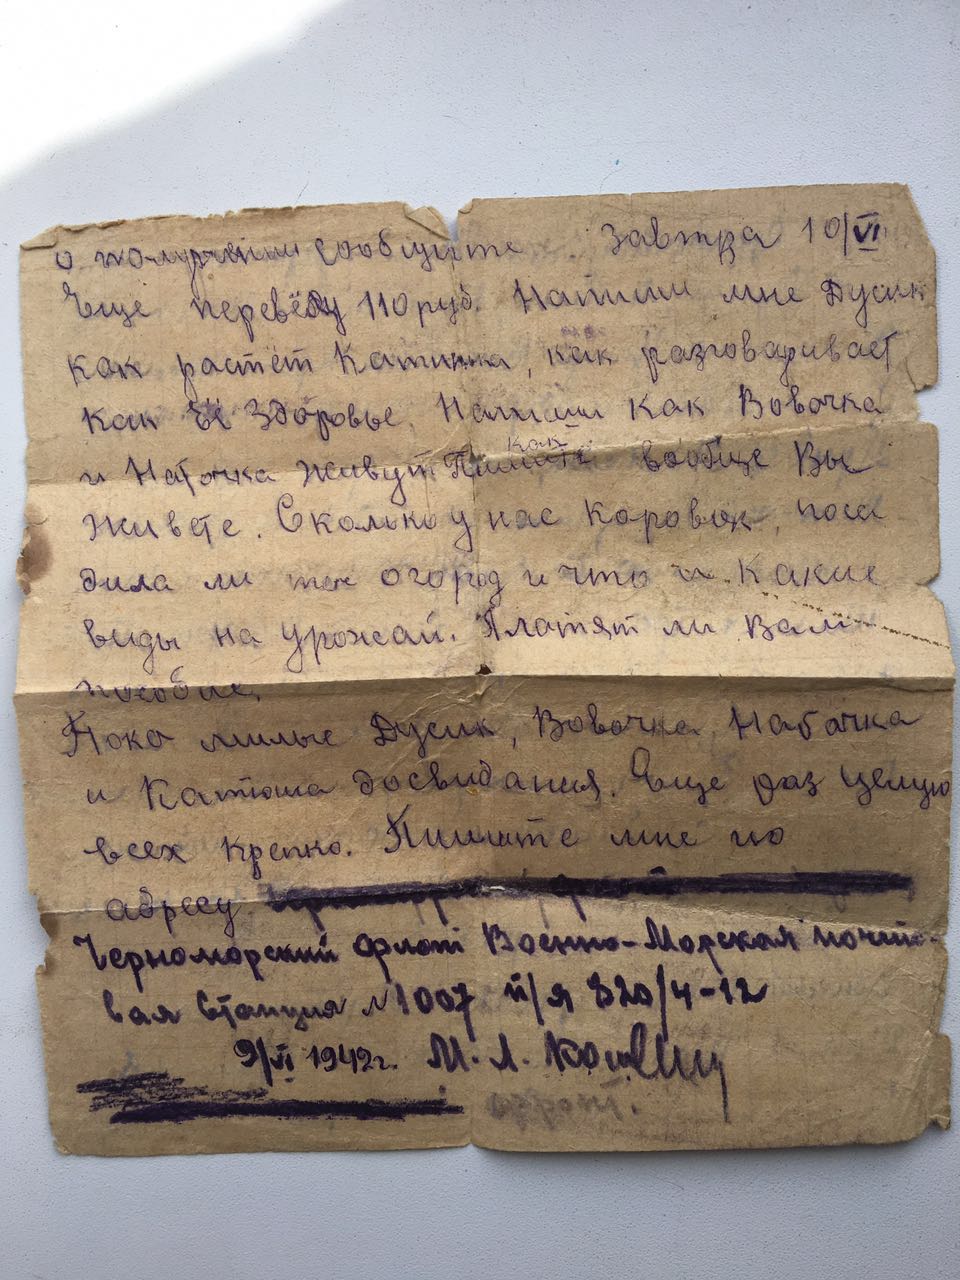 о получении сообщите. Завтра 10/VI
Еще переведу 110 руб. Напиши мне Дусик
как растёт Катинка, как разговаривает
как Её Здоровье. Напиши как Вовочка
и Наточка живут Пишите как вообще Вы
живете. Сколько у нас коровок, поса
дила ли огород и что и какие
виды на урожай. Платят ли Вам
пособие.
Пока милые Дусик, Вовочка, Наточка
и Катюша досвидания. Еще раз целую
всех крепко. Пишите мне по
адресу
Черноморский флот Военно-Морская почто-
вая станция №1007 п/я 320/4-12
9/VI 1942г. М. Л.